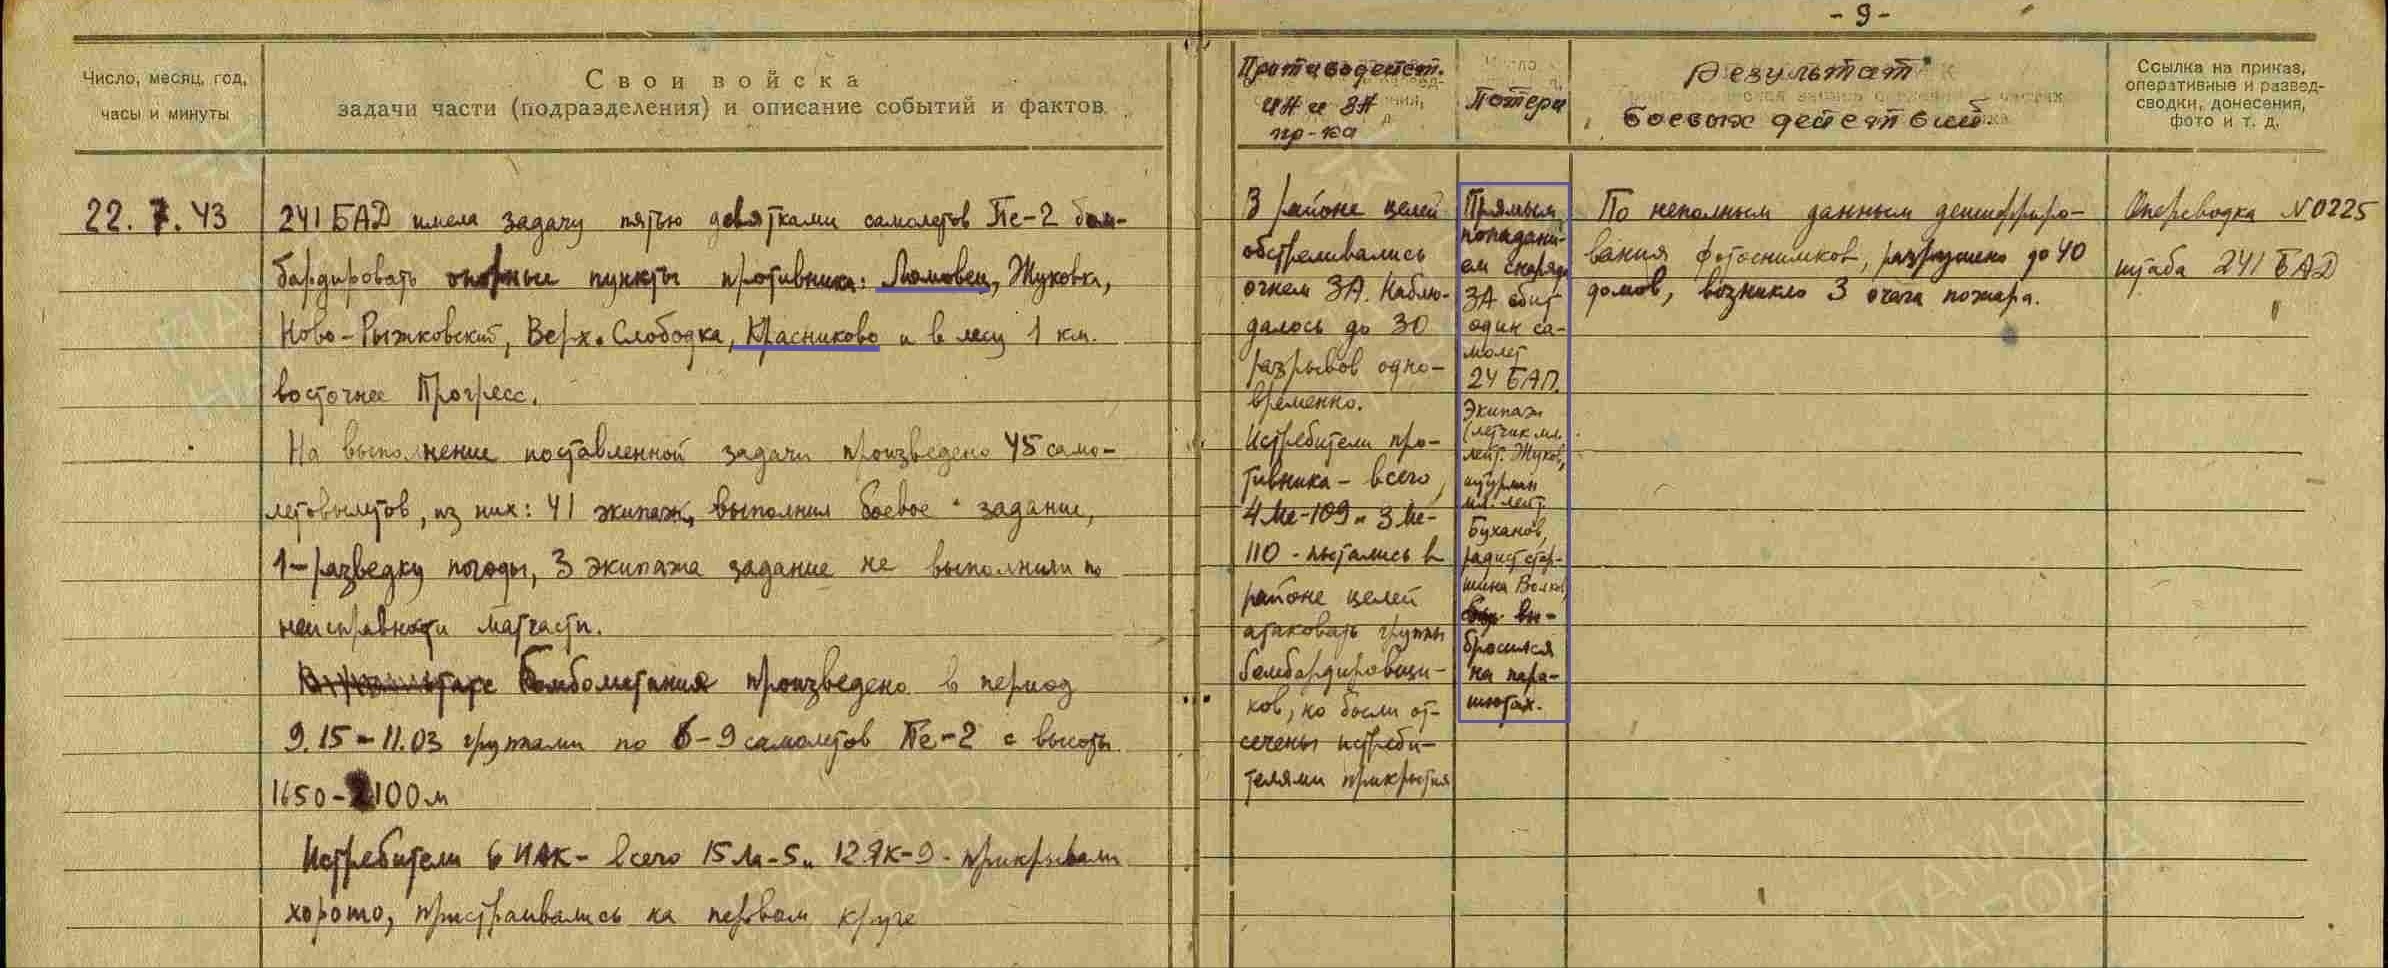 - 9 -
Число, месяц, год,
часы и минуты
Свои войска
задачи части (подразделения) и описание событий и фактов
Противодейст.
ИА и ЗА
пр-ка
Потери
Результат
боевых действий
Ссылка на приказ,
оперативные и развед-
сводки, донесения,
фото и т. д.
22. 7. 43
241 БАД имела задачу пятью девятками самолетов Пе-2 бом-
бардировать опорные пункты противника: Ломовец, Жуковка,
Ново-Рыжковский, Верх. Слободка, Красниково и в лесу 1 км.
восточнее Прогресс.
На выполнение поставленной задачи произведено 45 само-
летовылетов, из них: 41 экипаж, выполнил боевое задание,
1-разведку погоды, 3 экипажа задание не выполнили по
неисправности матчасти.
Бомбометание произведено в период
9.15 - 11.03 группами по 6-9 самолетов Пе-2 с высоты
1650-2100 м
Истребители 6 ИАК - всего 15 Ла-5 и 12 ЯК-9 - прикрывали
хорошо, пристраивались на первом круге
В районе целей
обстреливались
огнем ЗА. Наблю-
далось до 30
разрывов одно-
временно.
Истребители про-
тивника - всего,
4 Ме-109 и 3 Ме-
110 - пытались в
районе целей
атаковать группы
бомбардировщи-
ков, но были от-
сечены истреби-
телями прикрытия
Прямым
попадани-
ем снаряда
ЗА сбит
один са-
молет
24 БАП.
Экипаж
(летчик мл.
лейт. Жуков,
штурман
мл. лейт.
Буханов,
радист стар-
шина Волков,
вы-
бросился
на пара-
шютах.
По неполным данным дешифриро-
вания фотоснимков, разрушено до 40
домов, возникло 3 очага пожара.
Оперсводка № 0225
штаба 241 БАД
ПАМЯТЬ
НАРОДА